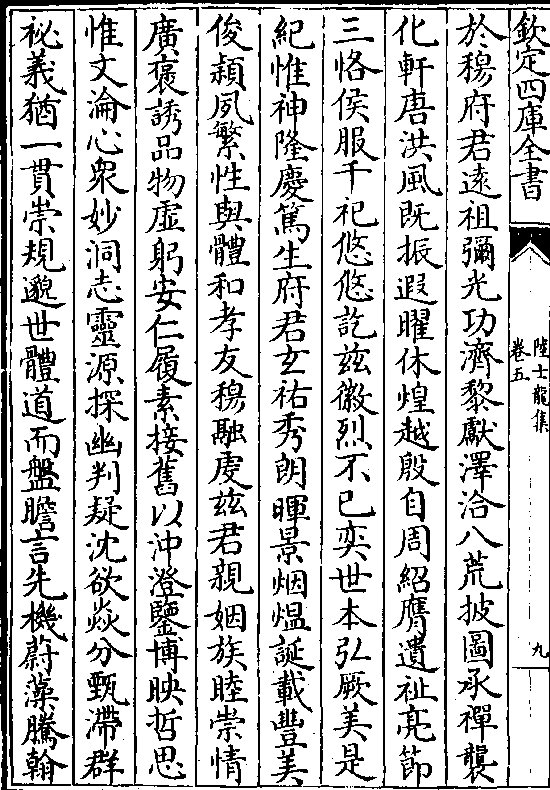 欽定四庫全書
陸士龍集
卷五
九
於穆府君遠祖彌光功濟黎獻澤洽八荒披圖承禪襲
化軒唐洪風既振遐曜休煌越殷自周紹膺遺祉亮節
三恪侯服千祀悠悠訖兹徽烈不已奕世本弘厥美是
紀惟神隆慶篤生府君玄祐秀朗暉景烟熅誕載豐美
俊穎夙繁性與體和孝友穆融虔兹君親姻族睦崇情
廣褒誘品物虚躬安仁履素接舊以沖澄鑒博映哲思
惟文淪心衆妙洞志靈源探幽判疑沈欲焱分甄滯群
祕義猶一貫崇規邈世體道而盤瞻言先機蔚藻騰翰